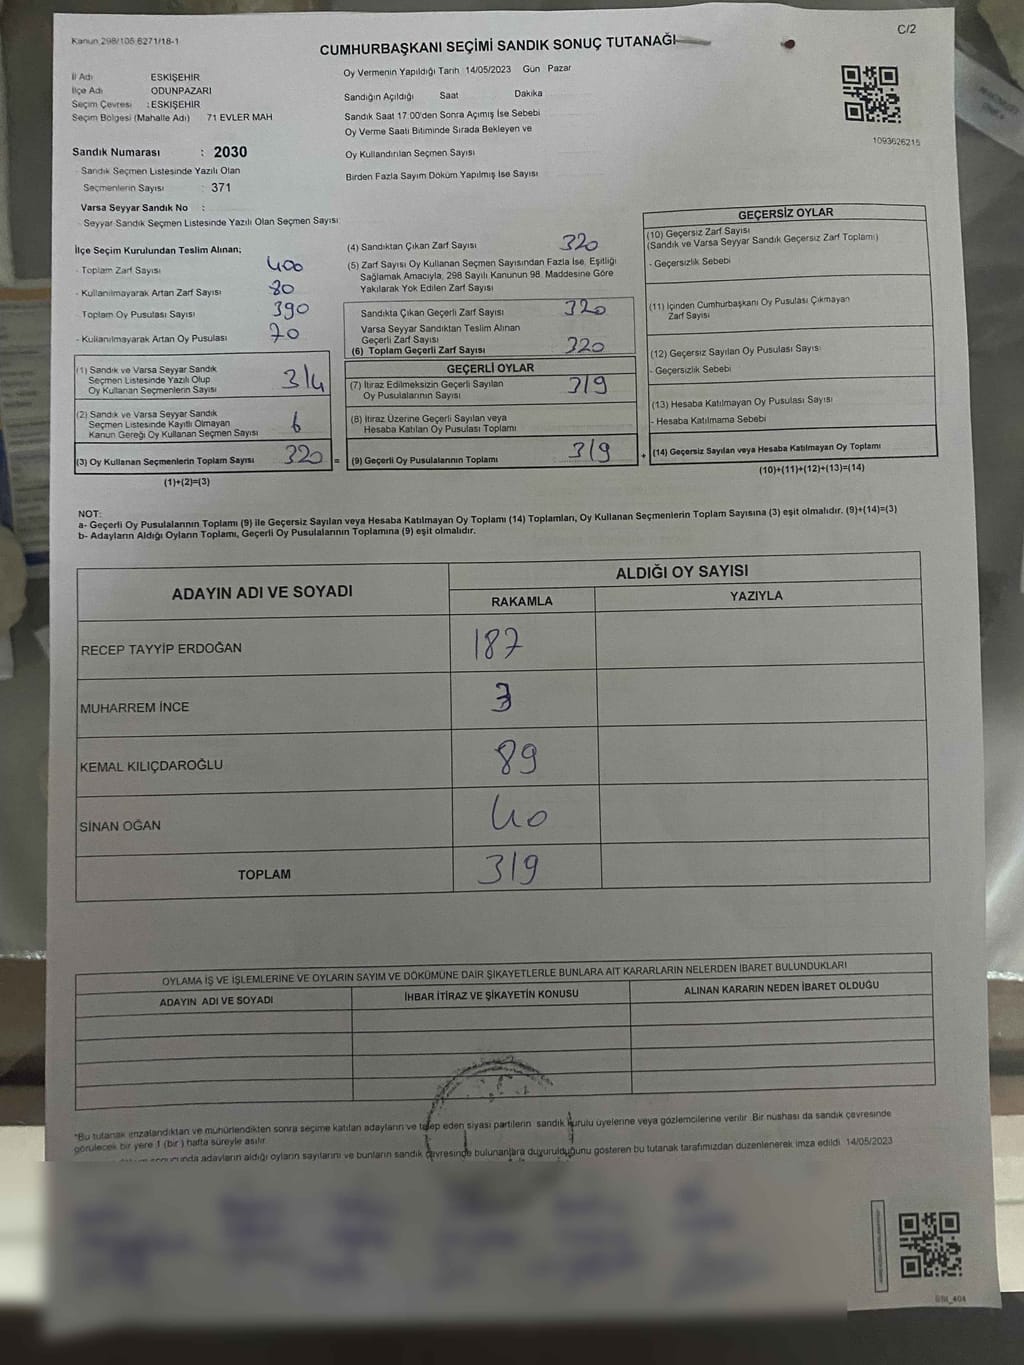 Kanun 298/105 6271/18-1
C/2
CUMHURBAŞKANI SEÇİMİ SANDIK SONUÇ TUTANAĞI
İl Adı ESKİŞEHİR
İlçe Adı ODUNPAZARI
Seçim Çevresi : ESKİŞEHİR
Seçim Bölgesi (Mahalle Adı) 71 EVLER MAH
Sandık Numarası : 2030
- Sandık Seçmen Listesinde Yazılı Olan
Seçmenlerin Sayısı : 371
Varsa Seyyar Sandık No :
- Seyyar Sandık Seçmen Listesinde Yazılı Olan Seçmen Sayısı:
Oy Vermenin Yapıldığı Tarih 14/05/2023 Gün Pazar
Sandığın Açıldığı Saat Dakika
Sandık Saat 17:00'den Sonra Açımış İse Sebebi
Oy Verme Saati Bitiminde Sırada Bekleyen ve
Oy Kullandırılan Seçmen Sayısı
Birden Fazla Sayım Döküm Yapılmış İse Sayısı
1093626215
İlçe Seçim Kurulundan Teslim Alınan;
- Toplam Zarf Sayısı 400
- Kullanılmayarak Artan Zarf Sayısı 80
- Toplam Oy Pusulası Sayısı 390
- Kullanılmayarak Artan Oy Pusulası 70
(1) Sandık ve Varsa Seyyar Sandık
Seçmen Listesinde Yazılı Olup
Oy Kullanan Seçmenlerin Sayısı 314
(2) Sandık ve Varsa Seyyar Sandık
Seçmen Listesinde Kayıtlı Olmayan
Kanun Gereği Oy Kullanan Seçmen Sayısı 6
(3) Oy Kullanan Seçmenlerin Toplam Sayısı 320 =
(1)+(2)=(3)
(4) Sandıktan Çıkan Zarf Sayısı 320
(5) Zarf Sayısı Oy Kullanan Seçmen Sayısından Fazla İse, Eşitliği
Sağlamak Amacıyla, 298 Sayılı Kanunun 98. Maddesine Göre
Yakılarak Yok Edilen Zarf Sayısı
Sandıkta Çıkan Geçerli Zarf Sayısı 320
Varsa Seyyar Sandıktan Teslim Alınan
Geçerli Zarf Sayısı
(6) Toplam Geçerli Zarf Sayısı 320
GEÇERLİ OYLAR
(7) İtiraz Edilmeksizin Geçerli Sayılan
Oy Pusulalarının Sayısı 319
(8) İtiraz Üzerine Geçerli Sayılan veya
Hesaba Katılan Oy Pusulası Toplamı
(9) Geçerli Oy Pusulalarının Toplamı 319 +
GEÇERSİZ OYLAR
(10) Geçersiz Zarf Sayısı
(Sandık ve Varsa Seyyar Sandık Geçersiz Zarf Toplamı)
- Geçersizlik Sebebi
(11) İçinden Cumhurbaşkanı Oy Pusulası Çıkmayan
Zarf Sayısı
(12) Geçersiz Sayılan Oy Pusulası Sayısı
- Geçersizlik Sebebi
(13) Hesaba Katılmayan Oy Pusulası Sayısı
- Hesaba Katılmama Sebebi
(14) Geçersiz Sayılan veya Hesaba Katılmayan Oy Toplamı
(10)+(11)+(12)+(13)=(14)
NOT:
a- Geçerli Oy Pusulalarının Toplamı (9) ile Geçersiz Sayılan veya Hesaba Katılmayan Oy Toplamı (14) Toplamları, Oy Kullanan Seçmenlerin Toplam Sayısına (3) eşit olmalıdır. (9)+(14)=(3)
b- Adayların Aldığı Oyların Toplamı, Geçerli Oy Pusulalarının Toplamına (9) eşit olmalıdır.
ADAYIN ADI VE SOYADI ALDIĞI OY SAYISI
RAKAMLA YAZIYLA
RECEP TAYYİP ERDOĞAN 187
MUHARREM İNCE 3
KEMAL KILIÇDAROĞLU 89
SİNAN OĞAN 40
TOPLAM 319
OYLAMA İŞ VE İŞLEMLERİNE VE OYLARIN SAYIM VE DÖKÜMÜNE DAİR ŞİKAYETLERLE BUNLARA AİT KARARLARIN NELERDEN İBARET BULUNDUKLARI
ADAYIN ADI VE SOYADI İHBAR İTİRAZ VE ŞİKAYETİN KONUSU ALINAN KARARIN NEDEN İBARET OLDUĞU
*Bu tutanak imzalandıktan ve mühürlendikten sonra seçime katılan adayların ve talep eden siyasi partilerin sandık kurulu üyelerine veya gözlemcilerine verilir. Bir nüshası da sandık çevresinde
görülecek bir yere 1 (bir) hafta süreyle asılır.
sonucunda adayların aldığı oyların sayılarını ve bunların sandık çevresinde bulunanlara duyurulduğunu gösteren bu tutanak tarafımızdan düzenlenerek imza edildi. 14/05/2023